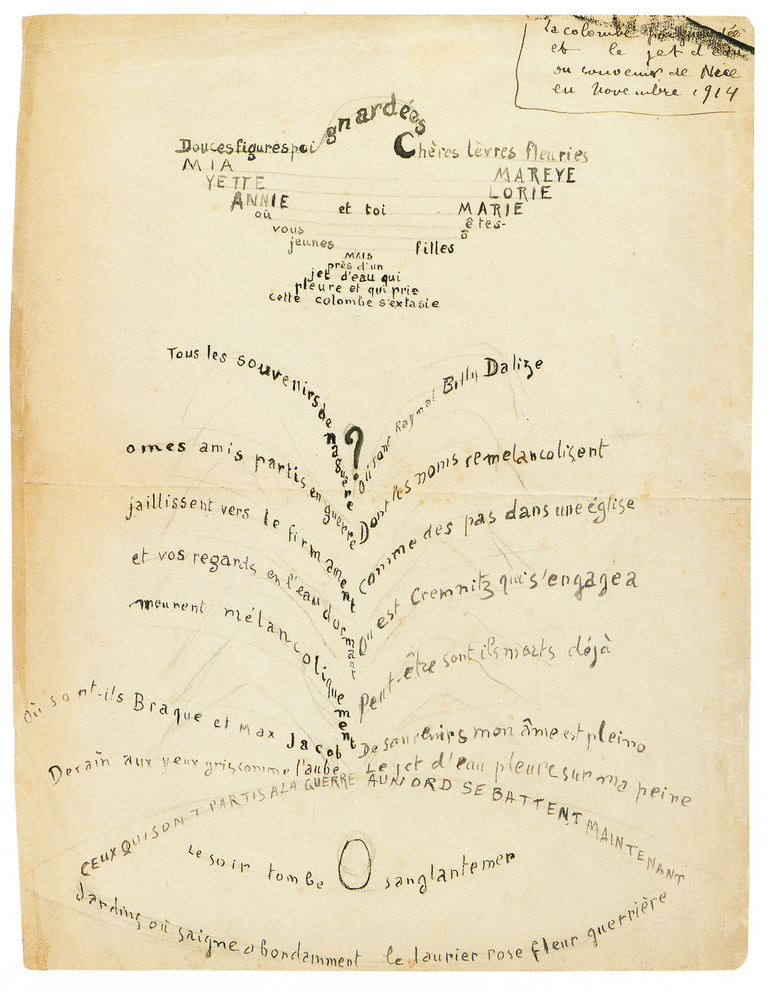 la colombe poignardée
et le jet d'eau
ou souvenir de Nice
en Novembre 1914
Doucesfigurespoignardées Chères lèvres fleuries
MIA MAREYE
YETTE LORIE
ANNIE et toi MARIE
où êtes-
vous ô
jeunes filles
MAIS
près d'un
jet d'eau qui
pleure et qui prie
cette colombe s'extasie
Tous les souvenirs de naguère
omes amis partis en guerre
jaillissent vers le firmament
et vos regards en l'eau dormant
meurent mélancoliquement
Où sont-ils Braque et Max Jacob
Derain aux yeux gris comme l'aube
?
Où sont Raynal Billy Dalize
Dont les noms se melancolisent
comme des pas dans une église
Où est Cremnitz qui s'engagea
Peut-être sont ils morts déjà
De souvenirs mon âme est pleine
Le jet d'eau pleure sur ma peine
CEUX QUI SONT PARTIS A LA GUERRE AU NORD SE BATTENT MAINTENANT
Le soir tombe O sanglante mer
Jardins où saigne abondamment le laurier rose fleur guerrière